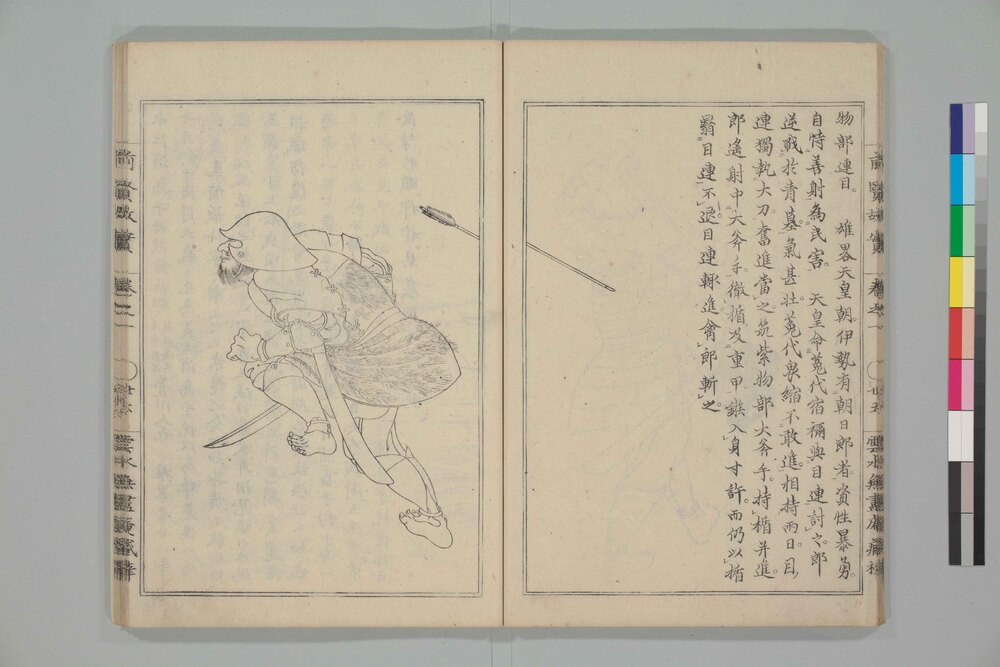 物部連目。 雄畧天皇朝伊勢有朝日郎者資性暴勇。
自恃善射為民害。 天皇命菟代宿禰與目連討之郎
逆戰於青墓。氣甚壮菟代畏縮不敢進。相持兩日目
連獨執大刀。奮進當之筑紫物部大斧手。持楯并進
郎遙射中大斧手。徹楯及重甲鏃入身寸許。而仍以楯
翳目連不退目連輙進禽郎斬之。
前賢故實
卷之一
廿五
前賢故實
卷之一